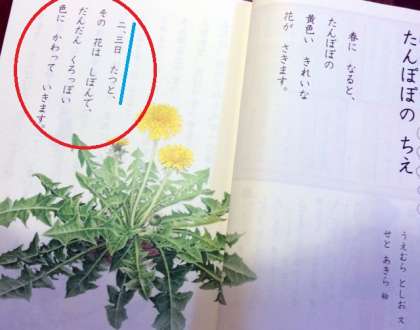 たんぽぽの ちえ
うえむら としお 文
せと あきら 絵
春に なると、
たんぽぽの
黄色い きれいな
花が さきます。
二、三日 たつと、
その 花は しぼんで、
だんだん くろっぽい
色に かわって いきます。